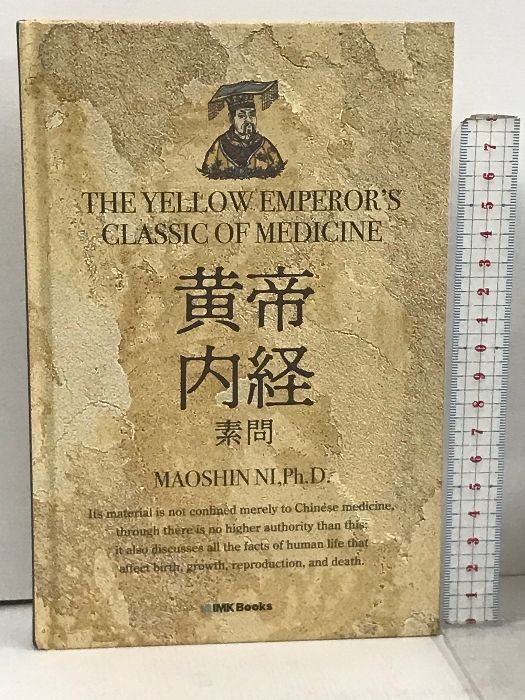 THE YELLOW EMPEROR'S
CLASSIC OF MEDICINE
黄帝
内経
素問
MAOSHIN NI,Ph.D.
Its material is not confined merely to Chinese medicine,
through there is no higher authority than this;
it also discusses all the facts of human life that
affect birth, growth, reproduction, and death.
IMK Books
7
6
5
4
3
2
1
0
9
8
7
6
5
4
3
2
1